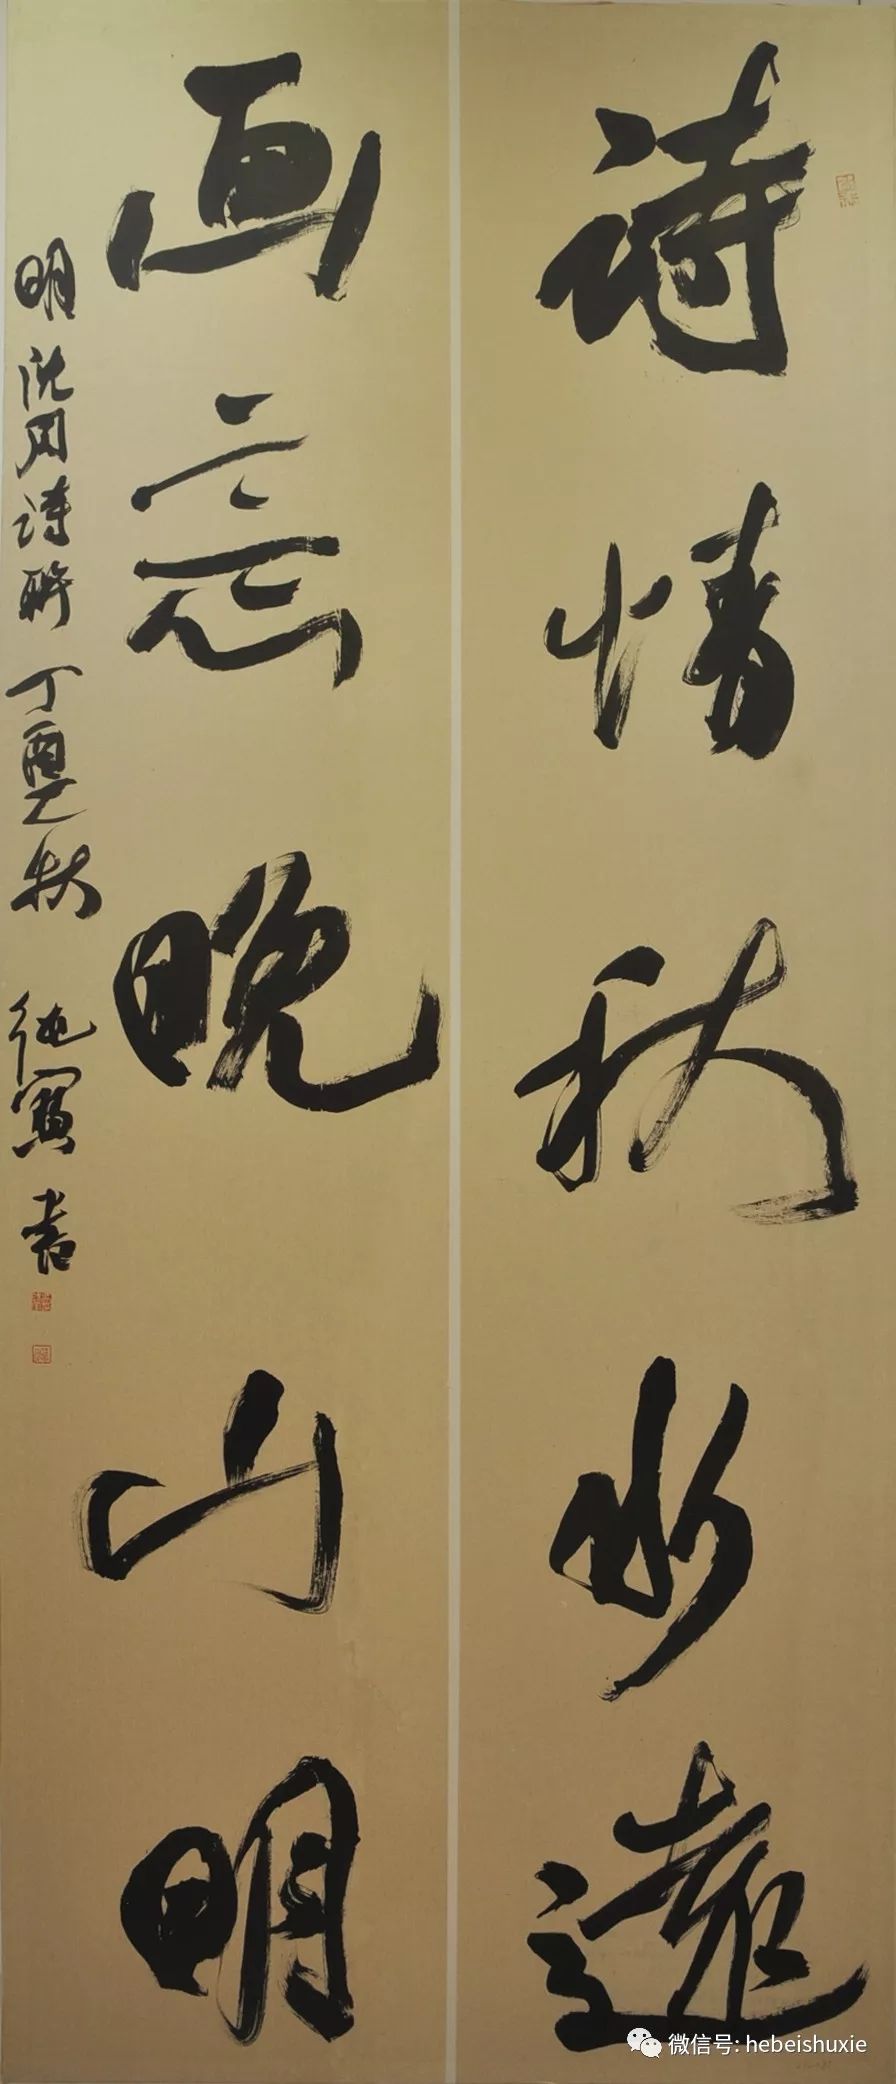 詩情秋水遠
画意晚山明
明沈周詩聯 丁酉之秋 純寫 書
微信号: hebeishuxie